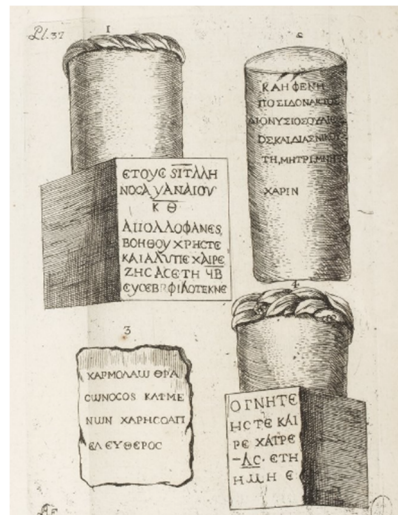 Pl. 37
1
ΕΤΟΥϹ SΙΤ ΛΛΗ
ΝΟϹΑΥΑΝΑΙΟΥ
Κ Θ
ΑΠΟΛΛΟΦΑΝΕS,
ΒΟΗΘΟΥ ΧΡΗϹΤΕ
ΚΑΙ ΑΛΥΠΕ ΧΑΙΡΕ
ΖΗϹ ΑϹ ΕΤΗ ЧΒ
ΕΥϹΕΒ ΦΙΛΟΤΕΚΝΕ
2
ΚΛΗΦΕΝΗ
ΠΟΣΙΔΟΝΑΚΤΟΣ
ΔΙΟΝΥΣΙΟΣ
ΟΣΚΑΙΔΙΑΣ
ΤΗ, ΜΗΤΡΙ, ΜΝΗ
ΧΑΡΙΝ
3
ΧΑΡΜΟΛΑΩ ΘΡΑ
ϹΩΝΟϹΟS ΚΑΤΜΕ
ΝΩΝ ΧΑΡΗϹΟΑΠ
ΕΛΕΥΘΕΡΟϹ
4
ΟΓΝΗΤΕ
ΗϹΤΕ ΚΑΙ
ΡΕ ΧΑΙΡΕ
–ΛϹ· ΕΤΗ